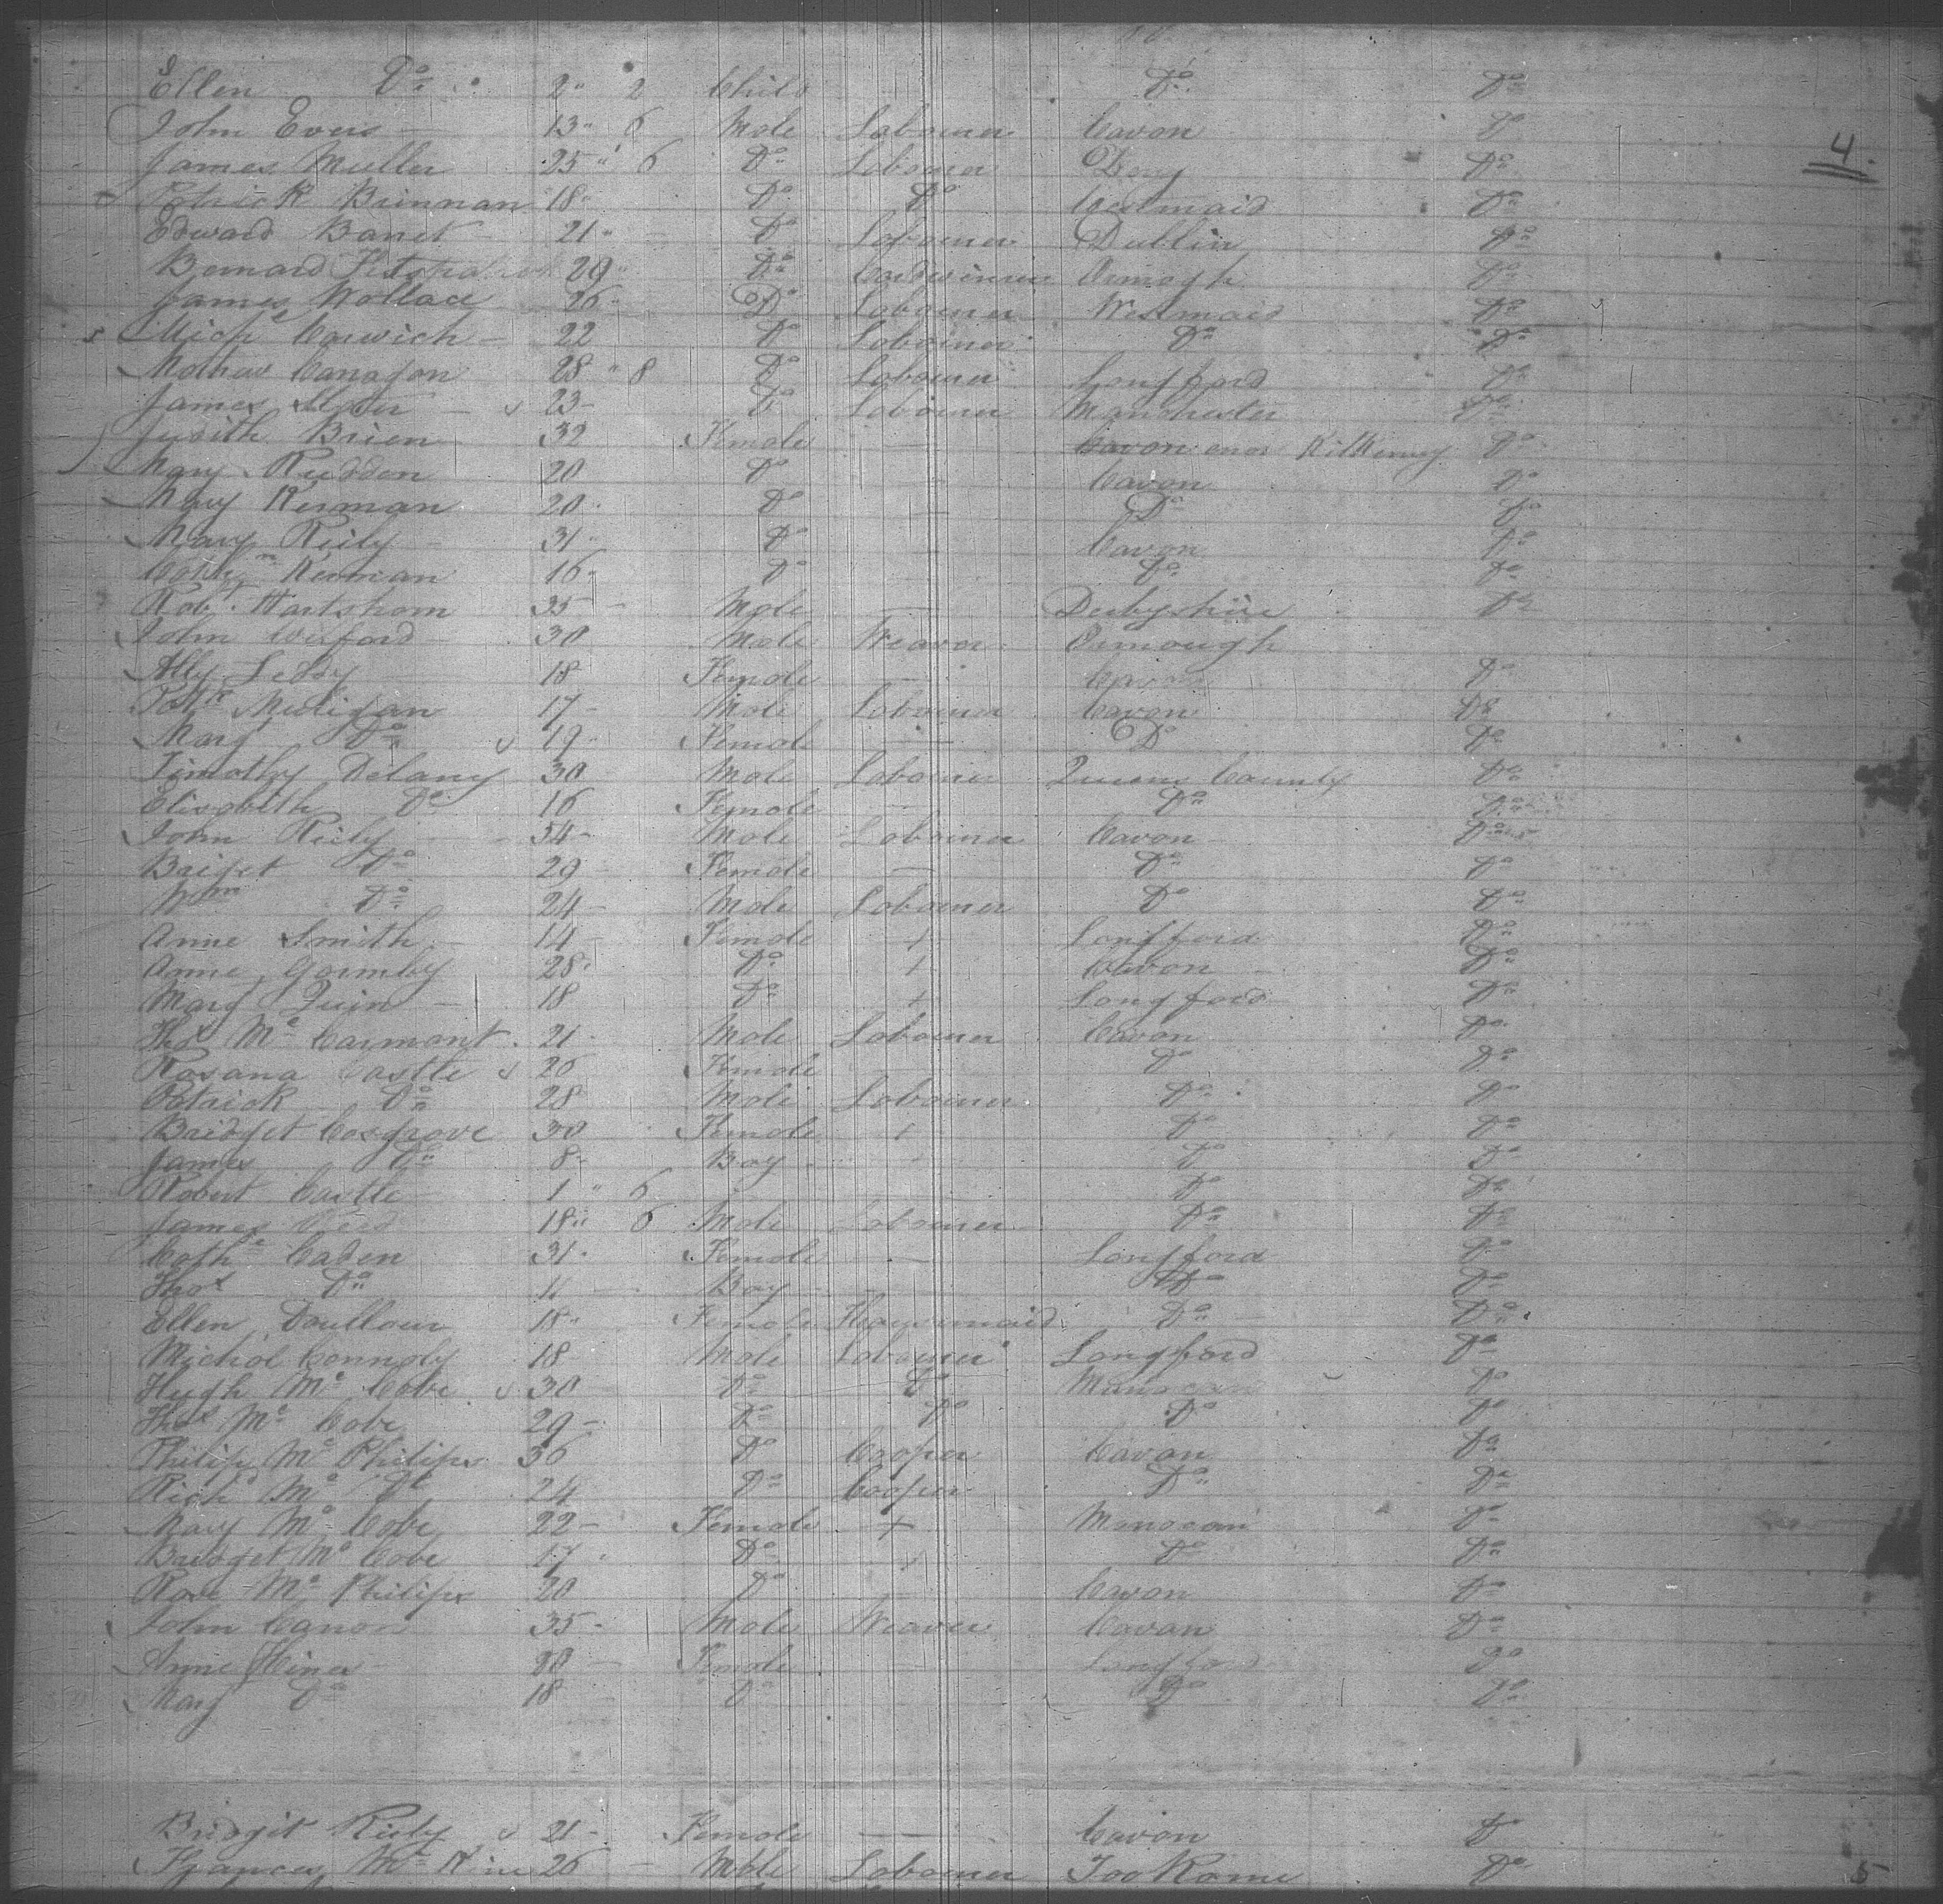 Ellen Do 2" 2 Child Do Do
John Evers 13" 6 Male Labourer Cavan Do
James Muller 25" 6 Do Labourer Do
Patrick Brinnan 18" Do Do Westmaid Do
Edward Banet 21" Do Labourer Dublin Do
Bernard 29" Do Cordwiner Armagh Do
James Wallace 26" Do Labourer Westmaid Do
Mich Carwich 22 Do Labourer Do Do
Mathew Canagan 28" 8 Do Labourer Longford Do
James 23 Do Labourer Manchester Do
Judith Brien 32 Female — Cavan Kilkenny Do
Mary Rudden 20 Do Cavan Do
Mary Kernan 20 Do — Do Do
Mary Reily 31 Do Cavan Do
Kernan 16 Do Do Do
Robt Hartshorn 35 Male — Derbyshire Do
John Wexford 30 Male Weaver Armough
Ally Leddy 18 Female — Cavan Do
Patk Muligan 17 Male Labourer Cavan Do
Marg Do 19 Female — Do Do
Timothy Delany 30 Male Labourer Queens County Do
Elisabeth Do 16 Female — Do Do
John Reily 54 Male Labourer Cavan Do
Briget Do 29 Female — Do Do
Wm Do 24 Male Labourer Do Do
Anne Smith 14 Female + Longford Do
Anne Gormby 28 Do + Cavan Do
Mary Quin 18 Do + Longford Do
Thos Mc Carmont 21 Male Labourer Cavan Do
Rosana Castle 20 Female Do Do
Patrick Do 28 Male Labourer Do Do
Bridget Cosgrove 30 Female + Do Do
James Do 8 Boy Do Do
Robert Castle 1" 6 Do Do
James Reed 18" 6 Male Labourer Do Do
Cathe Caden 31 Female — Longford Do
Thos Do 11 Boy Do Do
Ellen Doullour 18" Female Housemaid Do Do
Michal Connoly 18 Male Labourer Longford Do
Hugh Mc Cobe 30 Do Do Do
Thos Mc Cobe 29 Do Do Do Do
Philip Mc Philips 36 Do Cooper Cavan Do
Richd Mc Do 24 Do Cooper Do Do
Mary Mc Cobe 22 Female + Do
Bridget Mc Cobe 17 Do + Do Do
Rose Mc Philips 20 Do — Cavan Do
John Canon 35 Male Weaver Cavan Do
Anne Hines 20 Female Longford Do
Mary Do 18 Do Do Do
Bridgit Riely 21 Female — Cavan Do
Frances Mc 26 Male Labourer Do
4.
5